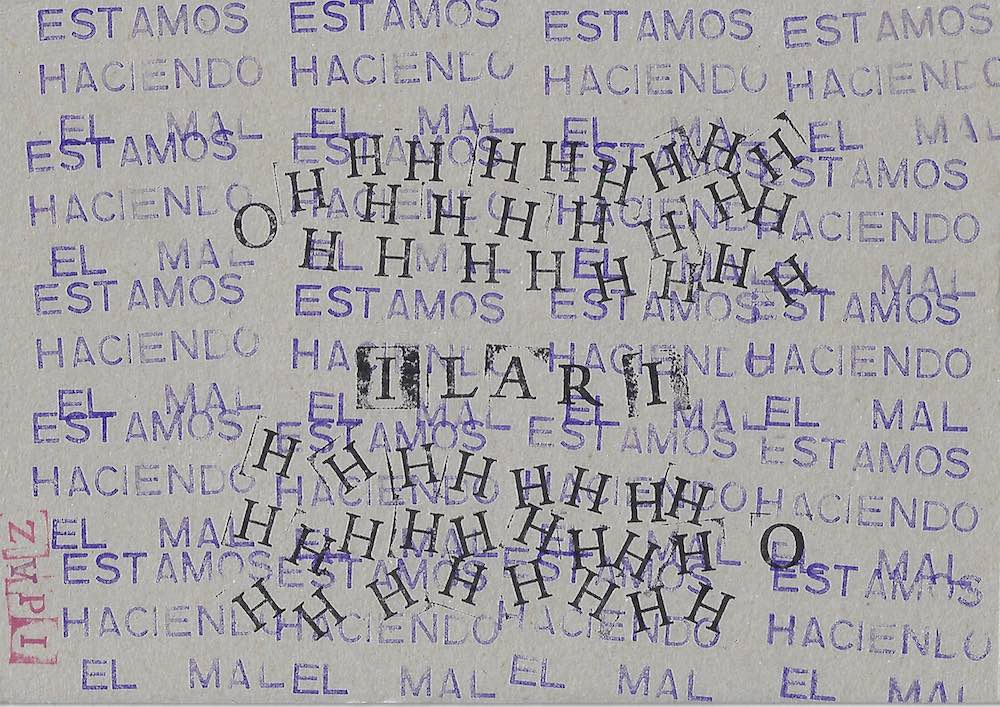 ESTAMOS ESTAMOS ESTAMOS ESTAMOS
HACIENDO HACIENDO HACIENDO HACIENDO
EL MAL EL MAL EL MAL EL MAL
ESTAMOS ESTAMOS ESTAMOS ESTAMOS
HACIENDO HACIENDO HACIENDO HACIENDO
EL MAL EL MAL EL MAL EL MAL
ESTAMOS ESTAMOS ESTAMOS ESTAMOS
HACIENDO HACIENDO HACIENDO HACIENDO
EL MAL EL MAL EL MAL EL MAL
ESTAMOS ESTAMOS ESTAMOS ESTAMOS
HACIENDO HACIENDO HACIENDO HACIENDO
EL MAL EL MAL EL MAL EL MAL
ESTAMOS ESTAMOS ESTAMOS ESTAMOS
HACIENDO HACIENDO HACIENDO HACIENDO
EL MAL EL MAL EL MAL EL MAL
H H H H H H H H
O H H H H H H H H
H H H H H H H H
ILARI
H H H H H H H H
H H H H H H H H H O
H H H H H H H H
ZMPI